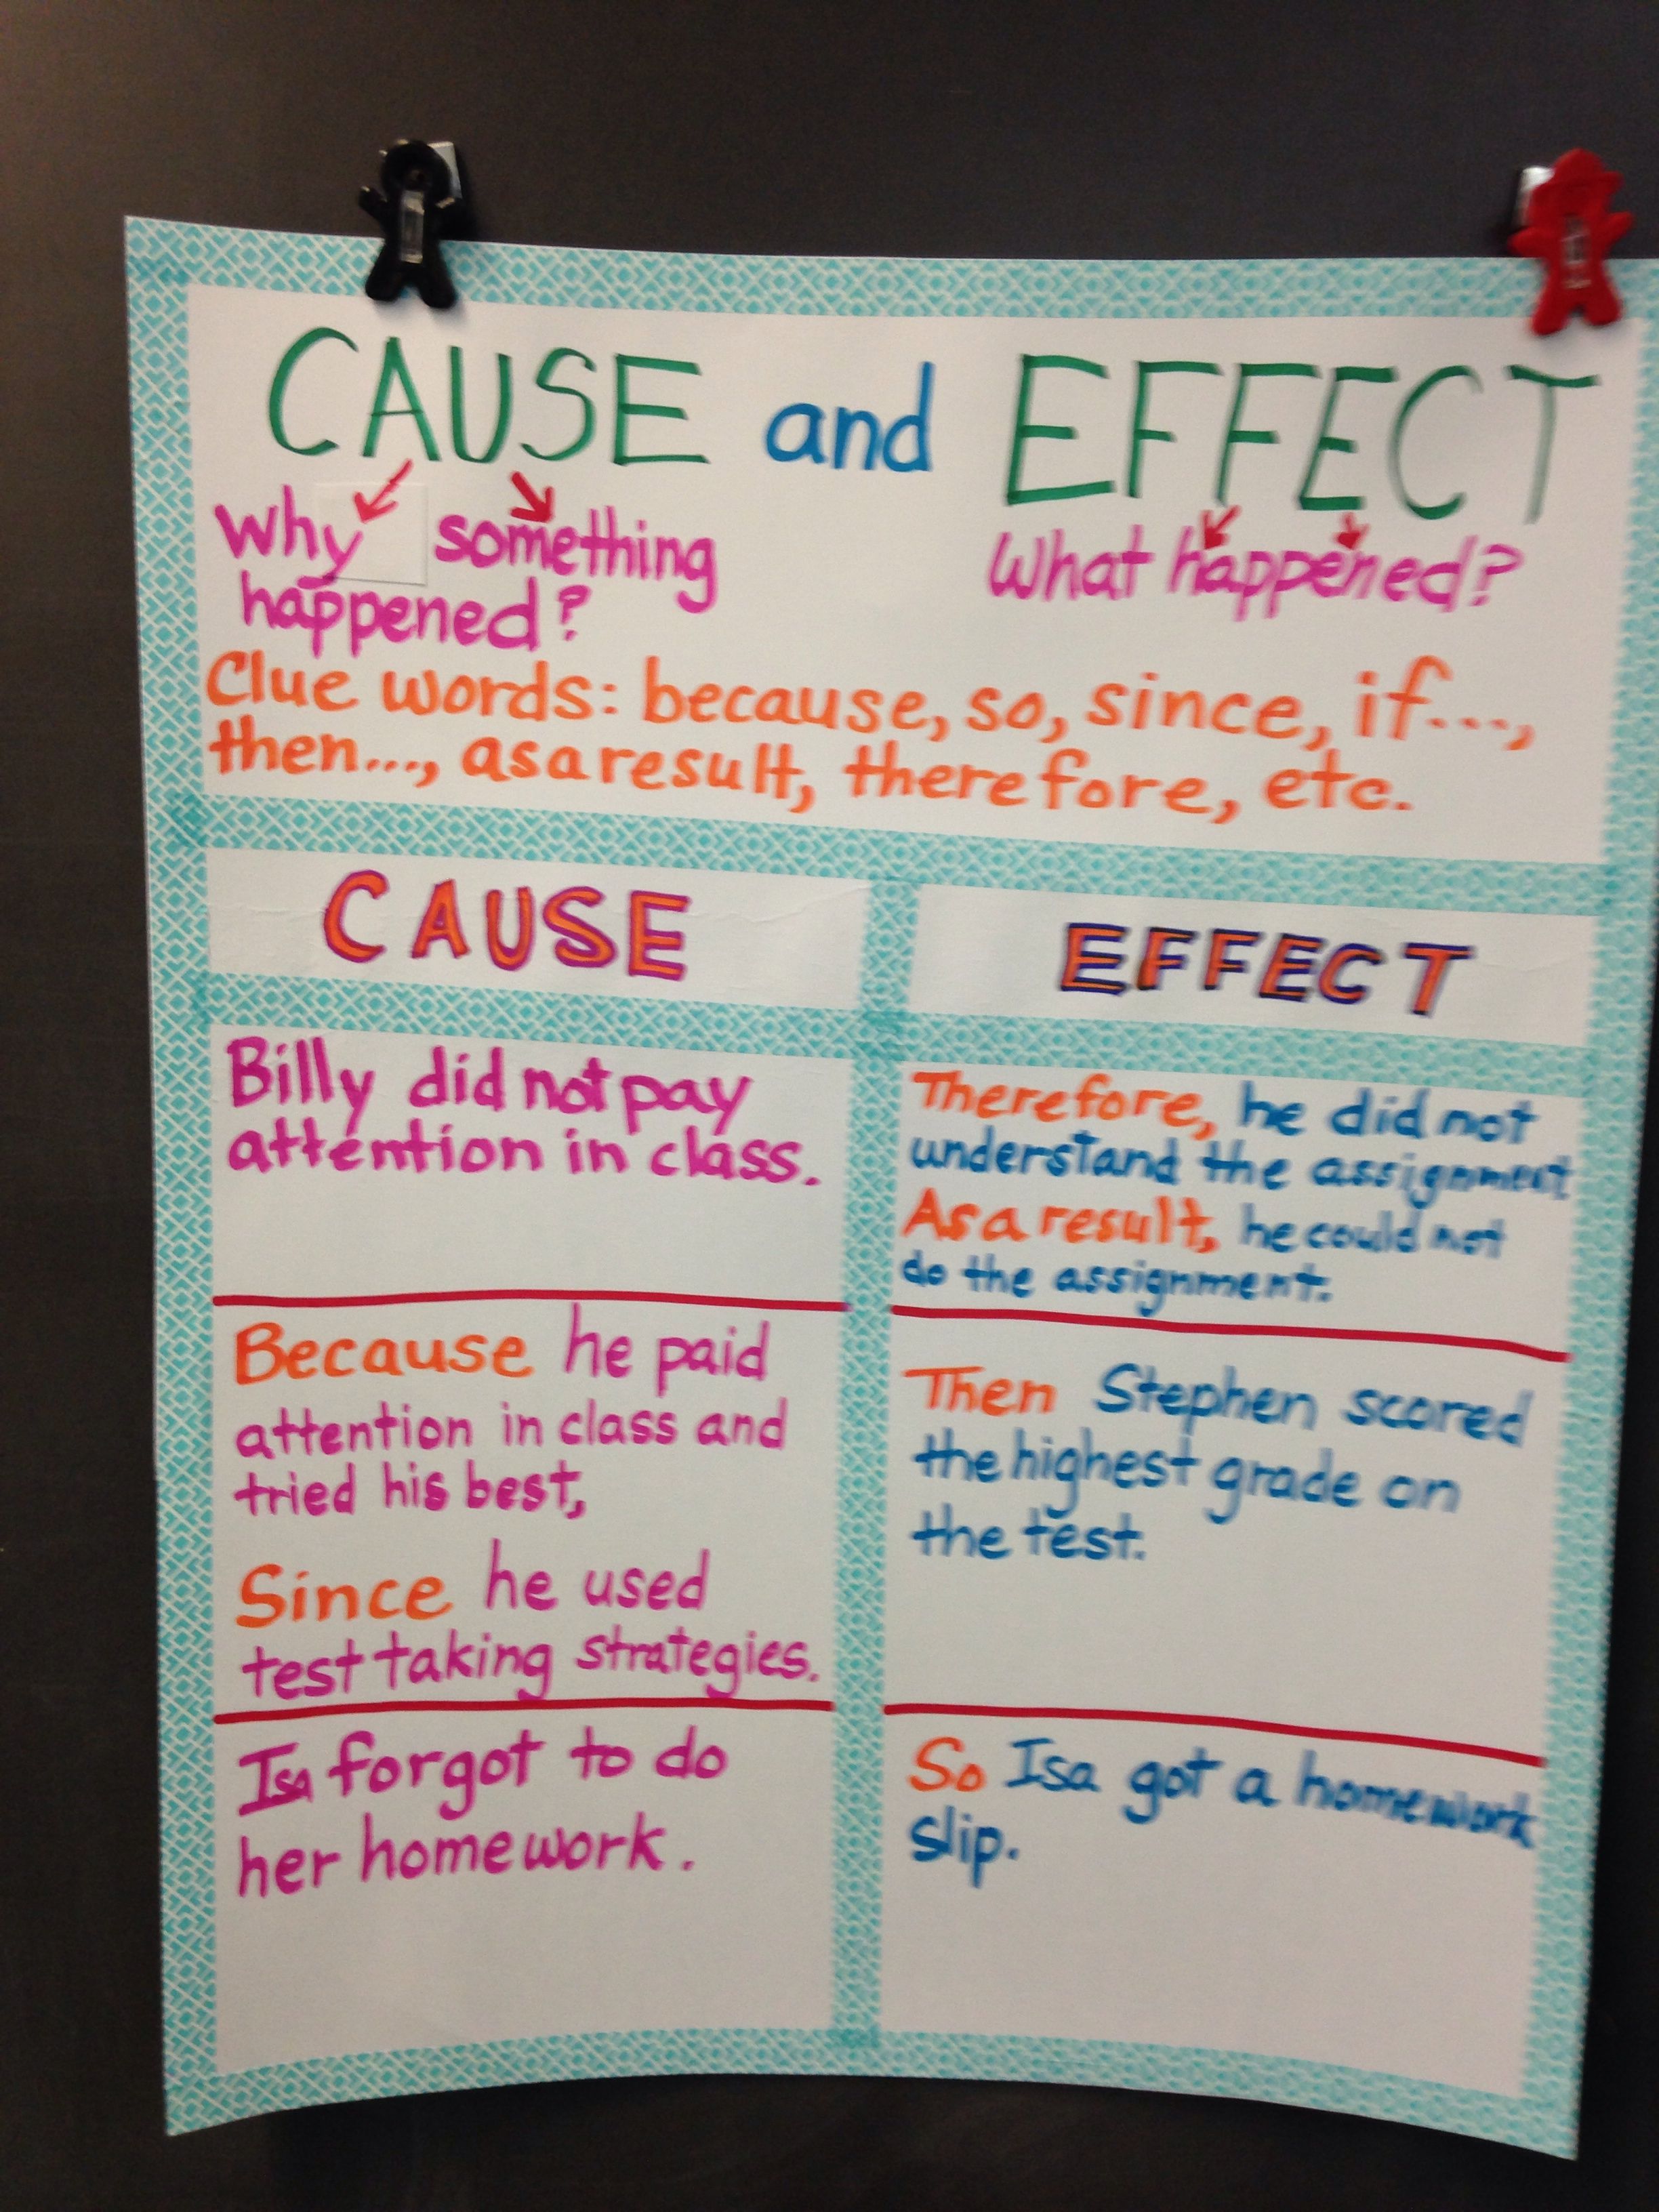 CAUSE and EFFECT
Why something
happened?
What happened?
Clue words: because, so, since, if...,
then..., as a result, therefore, etc.
CAUSE
EFFECT
Billy did not pay
attention in class.
Therefore, he did not
understand the assignment
As a result, he could not
do the assignment.
Because he paid
attention in class and
tried his best,
Since he used
test taking strategies.
Then Stephen scored
the highest grade on
the test.
Isa forgot to do
her homework.
So Isa got a homework
slip.